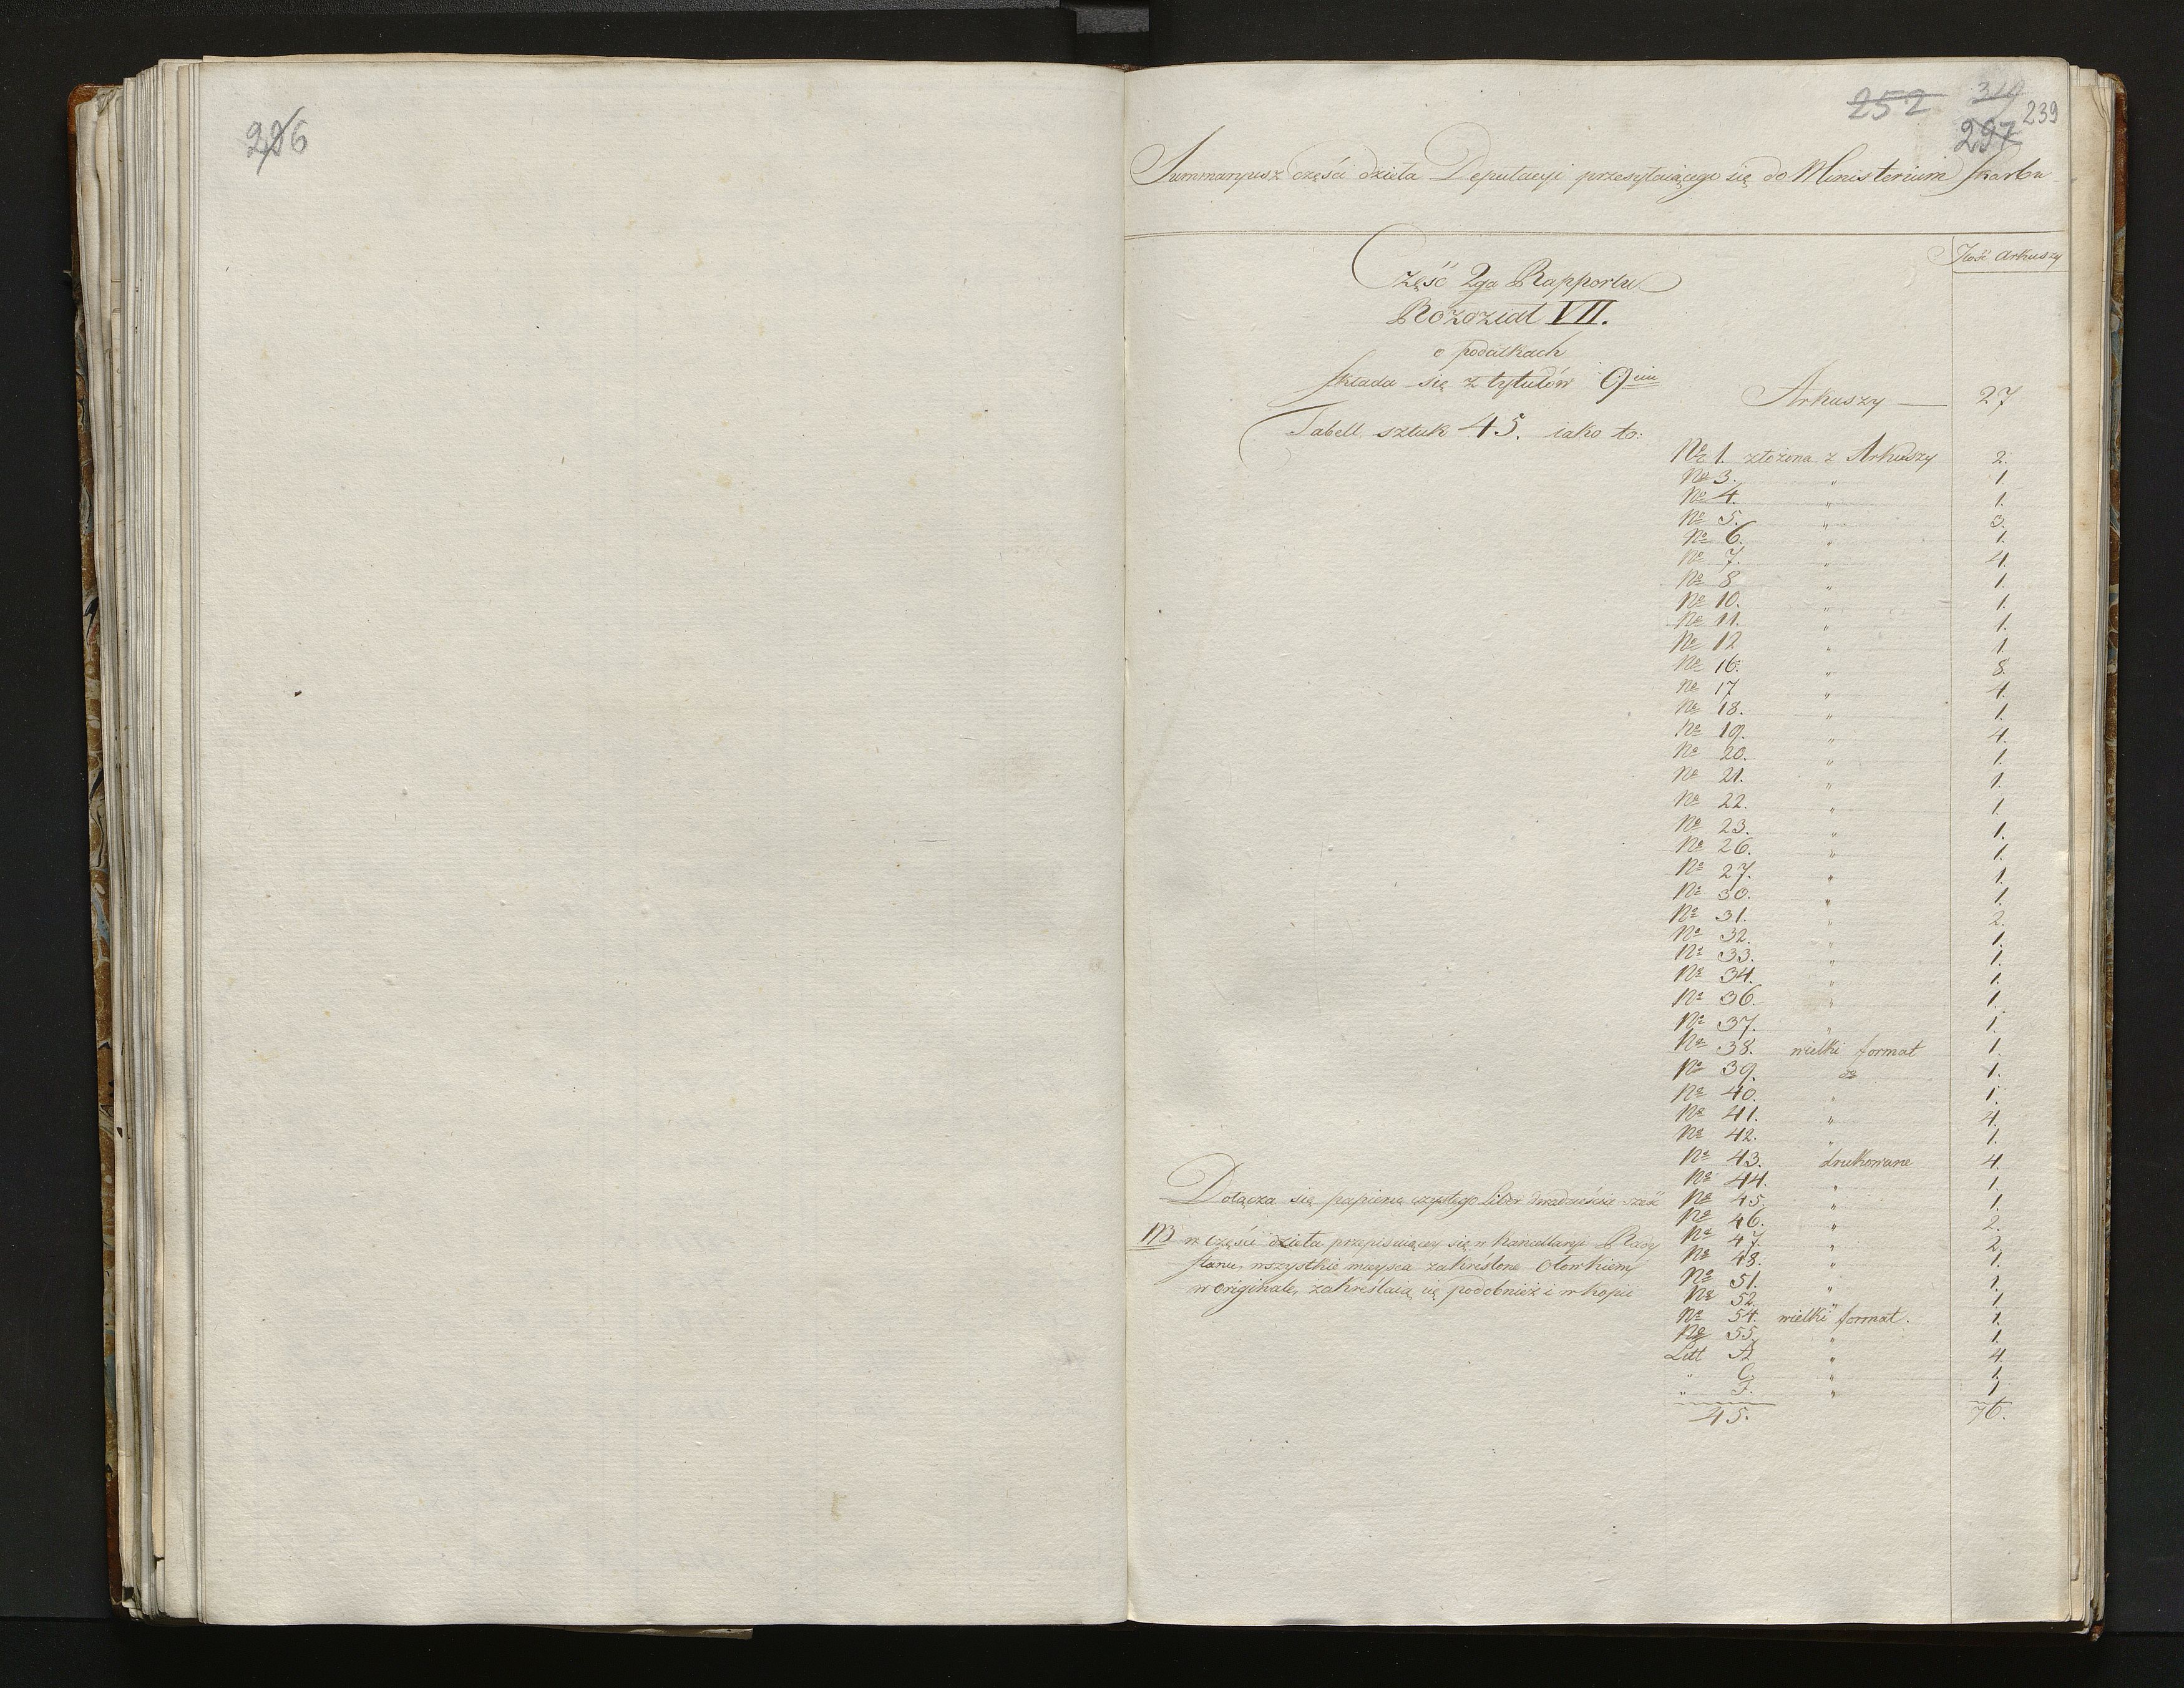 226
252 319 239
297
Summaryusz części dzieła Deputacyi przesyłaiącego się do Ministerium Skarbu
Ilość Arkuszy
Część 2ga Rapportu
Rozdział VII.
o podatkach
składa się z tytułów 9ciu
Arkuszy — 27
Tabell sztuk 45. iako to:
No 1. złożona z Arkuszy 2.
No 3. " 1.
No 4. " 1.
No 5. " 3.
No 6. " 1.
No 7. " 4.
No 8 " 1.
No 10. " 1.
No 11. " 1.
No 12 " 1.
No 16. " 8.
No 17 " 4.
No 18. " 1.
No 19. " 4.
No 20. " 1.
No 21. " 1.
No 22. " 1.
No 23. " 1.
No 26. " 1.
No 27. " 1.
No 30. " 1.
No 31. " 2.
No 32. " 1.
No 33. " 1.
No 34. " 1.
No 36. " 1.
No 37. " 1.
No 38. wielki format 1.
No 39. do 1.
No 40. " 1.
No 41. " 4.
No 42. " 1.
No 43. drukowane 4.
No 44. " 1.
No 45. " 1.
No 46. " 2.
No 47. " 2.
No 48. " 1.
No 51. " 1.
No 52. " 1
No 54. wielki format. 1.
No 55. " 1.
Litt A " 4.
" C. " 1.
" F. " 1
45. 76.
Dołącza się papieru czystego Liber dwadzieścia sześć
NB w części dzieła przepisuiącey się w Kancellaryi Rady
Stanu, wszystkie mieysca zakreślone ołowkiem
w originale, zakreślaią się podobnież i w kopii